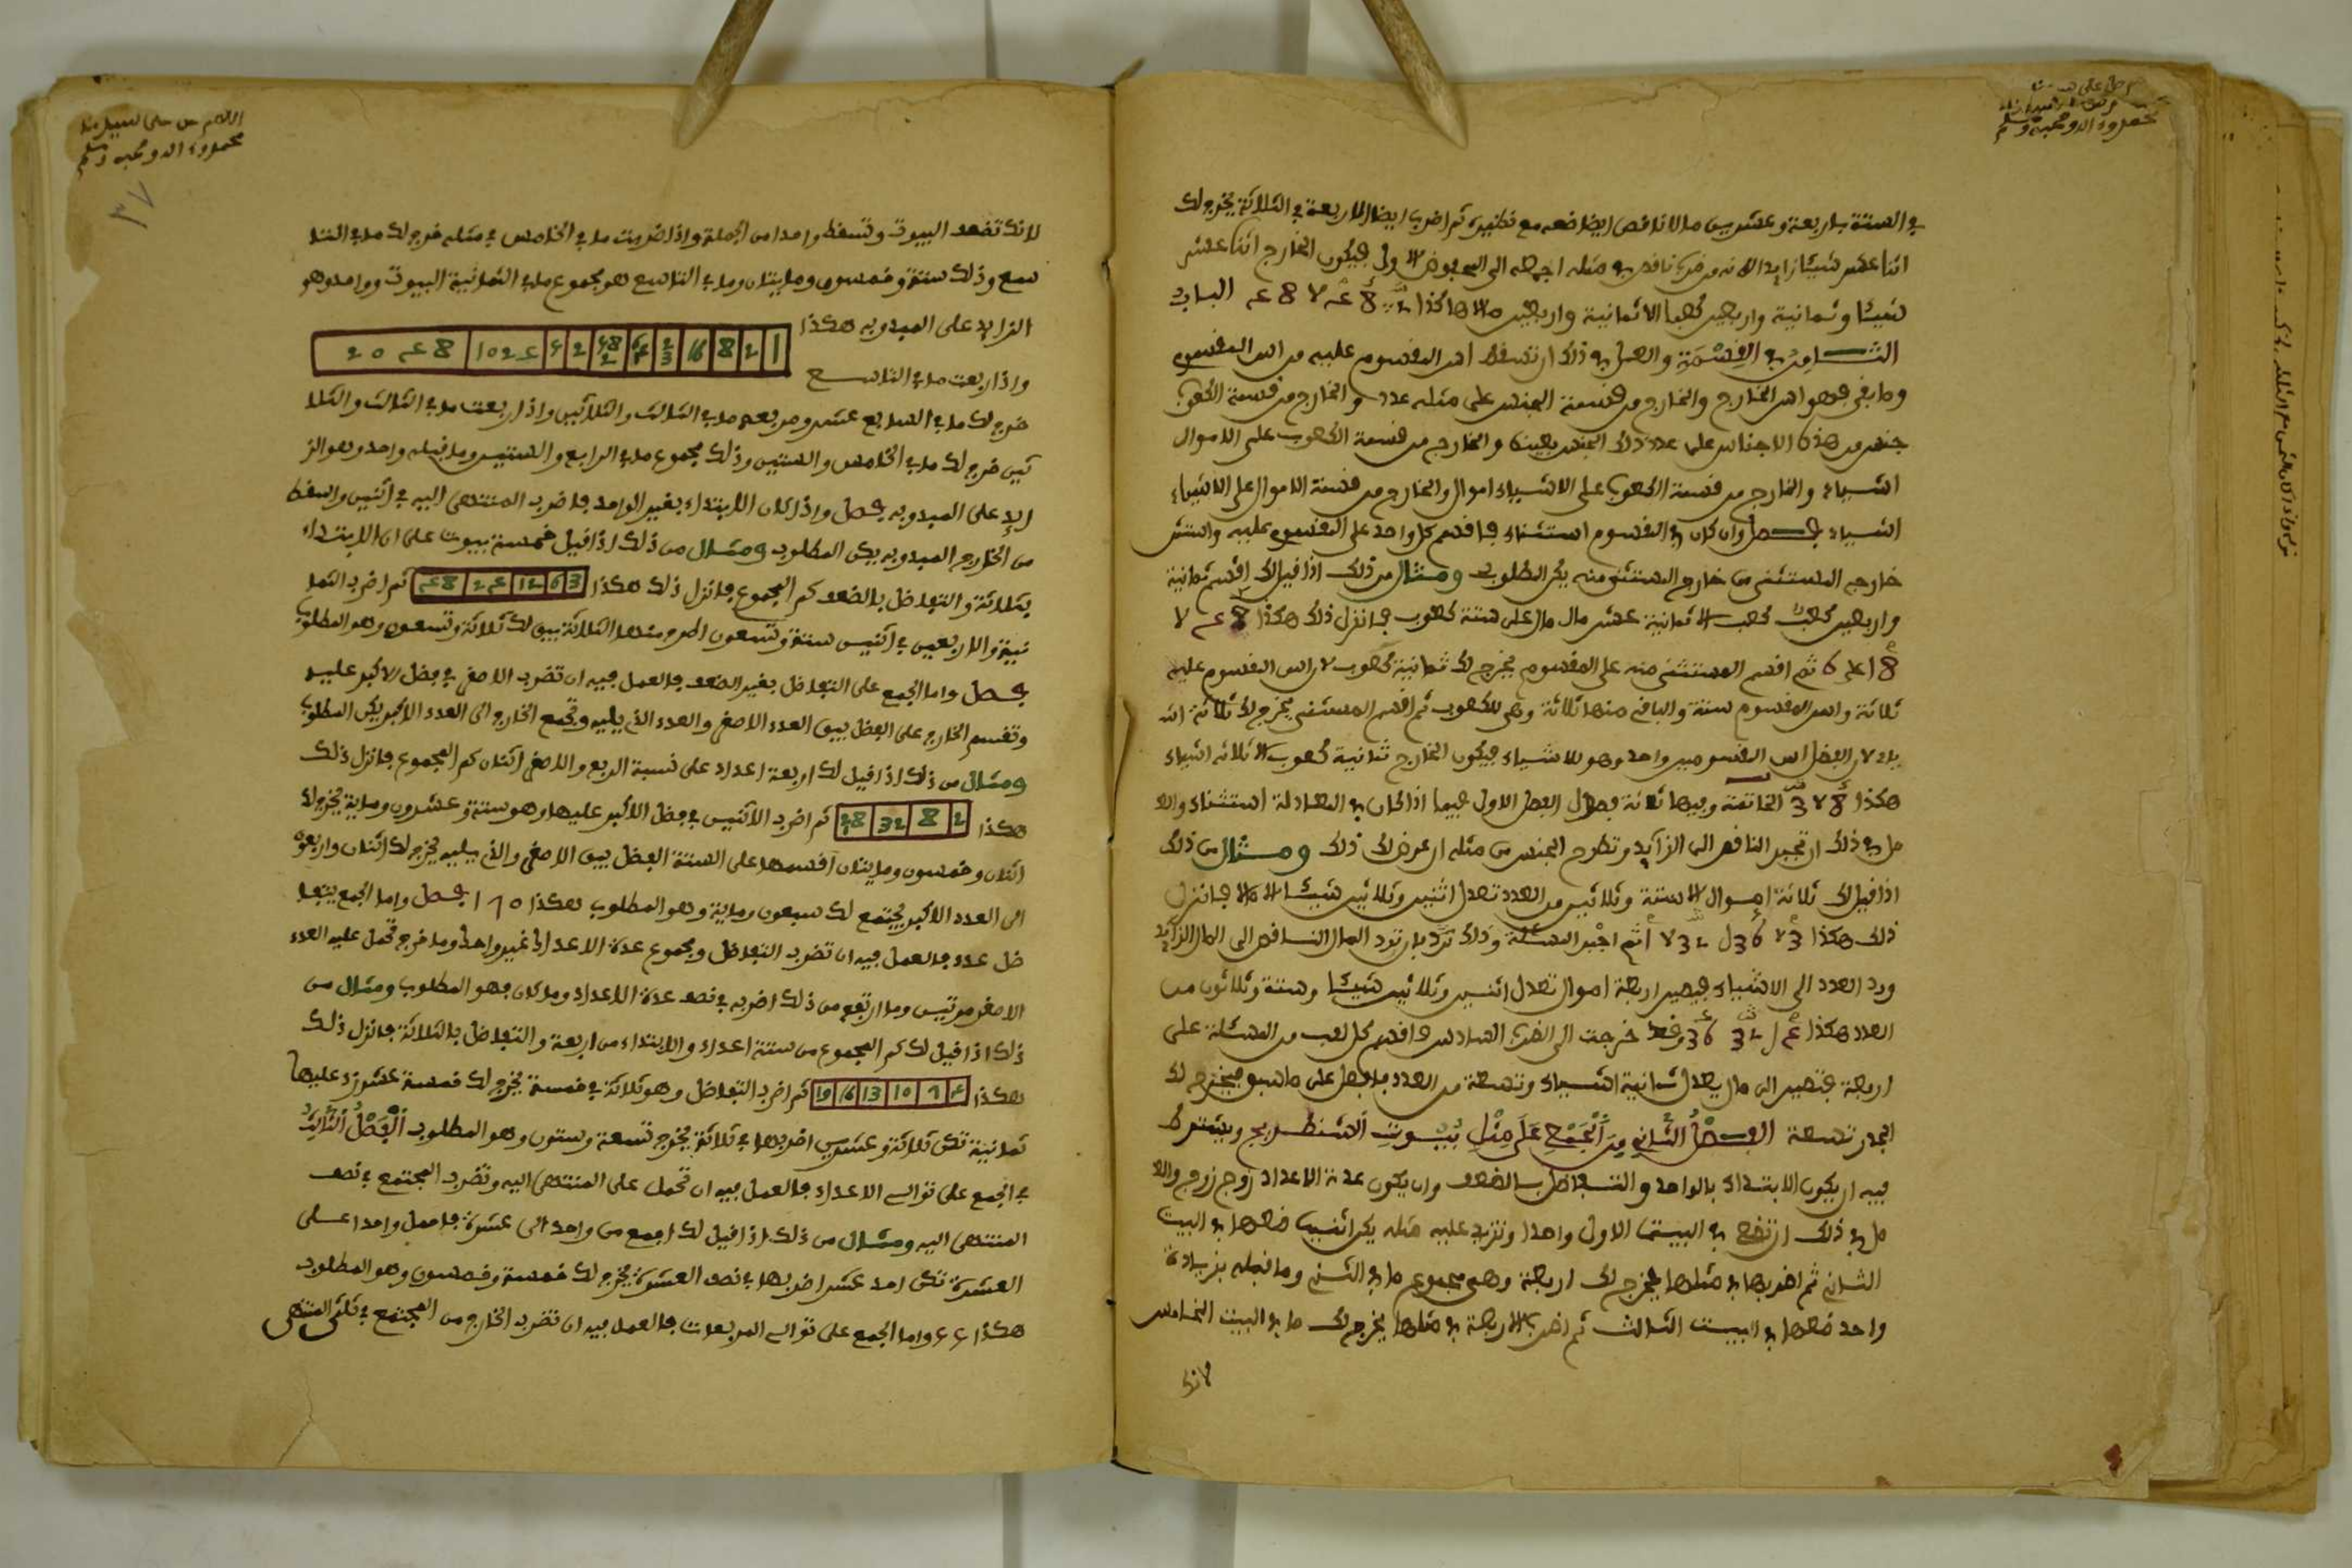 في الستة باربعة وعشرين مالا ناقص ايضا ضعه مع نظيره ثم اضرب ايضا الاربعة في الثلاثة يخرج لك
اثنا عشر شيئا زايدا لانه من ضرب ناقص في مثله اجمعه الى فيكون الخارج اثنا عشر
شيئا وثمانية واربعين كعبا الا ثمانية واربعين مالا هكذا الباب
الثامن في القسمة والعمل في ذلك ان تسقط اس المقسوم عليه من اس المقسوم
وما بقي فهو اس الخارج والخارج من قسمة الجنس على مثله عدد والخارج من قسمة
جنس من هذه الاجناس على عدد ذلك الجنس بعينه والخارج من قسمة الكعوب على الاموال
اشياء والخارج من قسمة الكعوب على الاشياء اموال والخارج من قسمة الاموال على الاشياء
اشياء فصل وان كان في المقسوم استثناء فاقسم كل واحد على المقسوم عليه واستثن
خارج المستثنى من خارج المستثنى منه يكن المطلوب ومثال من ذلك اذا قيل لك اقسم ثمانية
واربعين كعب كعب الا ثمانية عشر مال مال على ستة كعوب فانزل ذلك هكذا
ثم اقسم المستثنى منه على المقسوم يخرج لك ثمانية كعوب لان اس المقسوم عليه
ثلاثة واس المقسوم ستة والباقي منها ثلاثة وهي للكعوب ثم اقسم المستثنى يخرج لك ثلاثة اشـ
ياء لان الفضل اس المقسومين واحد وهو للاشياء فيكون الخارج ثمانية كعوب الا ثلاثة اشياء
هكذا الخاتمة وفيها ثلاثة فصول الفصل الاول فيما اذا كان في المعادلة استثناء والعـ
مل في ذلك ان تجبر الناقص الى الزايد وتطرح الجنس من مثله ان عرض لك ذلك ومثال من ذلك
اذا قيل لك ثلاثة اموال الا ستة وثلاثين من العدد تعدل اثنين وثلاثين شيئا الا مالا فانزل
ذلك هكذا ثم اجبر المسئلة وذلك بان تزد المال الناقص الى المال الزايد
ورد العدد الى الاشياء فيصير اربعة اموال تعدل اثنين وثلاثين شيئا وستة وثلاثون من
العدد هكذا فقد خرجت الى الضرب السادس فاقسم كل لقب من المسئلة على
اربعة فتصير الى مال يعدل ثمانية اشياء وتسعة من العدد فافعل على ما سبق فيخرج لك
الجذر تسعة الفصل الثاني في الجمع على مثل بيوت الشطرنج ويشترط
فيه ان يكون الابتداء بالواحد والتفاضل بالضعف وان يكون عدة الاعداد زوج زوج والعـ
مل في ذلك ان تضع في البيت الاول واحدا وتزيد عليه مثله يكن اثنين ضعها في البيت
الثاني ثم اضربها في مثلها يخرج لك اربعة وهي مجموع ما في الثاني وما قبله بزيادة
واحد ضعها في البيت الثالث ثم اضرب الاربعة في مثلها يخرج لك ما في البيت الخامس
لانك
لانك تضعف البيوت وتسقط واحدا من الجملة واذا ضربت ما في الخامس في مثله خرج لك ما في التا
سع وذلك ستة وخمسون ومايتان وما في التاسع هو مجموع ما في الثمانية البيوت وواحد وهو
الزايد على المبدو به هكذا
واذا ربعت ما في التاسع
خرج لك ما في السابع عشر ومربعه ما في الثالث والثلاثين واذا ربعت ما في الثالث والثلا
ثين خرج لك ما في الخامس والستين وذلك مجموع ما في الرابع والستين وما قبله واحد وهو الز
ايد على المبدو به فصل واذا كان الابتداء بغير الواحد فاضرب المنتهى اليه في اثنين واسقط
من الخارج المبدو به يكن المطلوب ومثال من ذلك اذا قيل خمسة بيوت على ان الابتداء
بثلاثة والتفاضل بالضعف كم المجموع فانزل ذلك هكذا 3 6 12 ثم اضرب الثما
نية والاربعين في اثنين ستة وتسعون اطرح منها الثلاثة يبق لك ثلاثة وتسعون وهو المطلوب
فصل واما الجمع على التفاضل بغير الضعف فالعمل فيه ان تضرب الاصغر في فضل الاكبر عليه
وتقسم الخارج على الفضل بين العدد الاصغر والعدد الذي يليه وتجمع الخارج الى العدد الاكبر يكن المطلوب
ومثال من ذلك اذا قيل لك اربعة اعداد على نسبة الربع والاصغر اثنان كم المجموع فانزل ذلك
هكذا 2 8 32 128 ثم اضرب الاثنين في فضل الاكبر عليها وهو ستة وعشرون وماية يخرج لك
اثنان وخمسون ومايتان اقسمها على الستة الفضل بين الاصغر والذي يليه يخرج لك اثنان واربعون
الى العدد الاكبر يجتمع لك سبعون وماية وهو المطلوب هكذا فصل واما الجمع بتفا
ضل عدد فالعمل فيه ان تضرب التفاضل في مجموع عدة الاعداد غير واحد وما خرج تحمل عليه العدد
الاصغر مرتين وما ارتفع من ذلك اضربه في نصف عدة الاعداد وما كان فهو المطلوب ومثال من
ذلك اذا قيل لك كم المجموع من ستة اعداد والابتداء من اربعة والتفاضل بالثلاثة فانزل ذلك
هكذا 10 13 16 19 ثم اضرب التفاضل وهو ثلاثة في خمسة يخرج لك خمسة عشر زد عليها
ثمانية تكن ثلاثة وعشرين اضربها في ثلاثة يخرج تسعة وستون وهو المطلوب الفصل الثالث
في الجمع على توالي الاعداد فالعمل فيه ان تحمل على المنتهى اليه وتضرب المجتمع في نصف
المنتهى اليه ومثال من ذلك اذا قيل لك اجمع من واحد الى عشرة فاحمل واحدا على
العشرة تكن احد عشر اضربها في نصف العشرة يخرج لك خمسة وخمسون وهو المطلوب
هكذا واما الجمع على توالي المربعات فالعمل فيه ان تضرب الخارج من المجتمع في ثلثي المنتهى